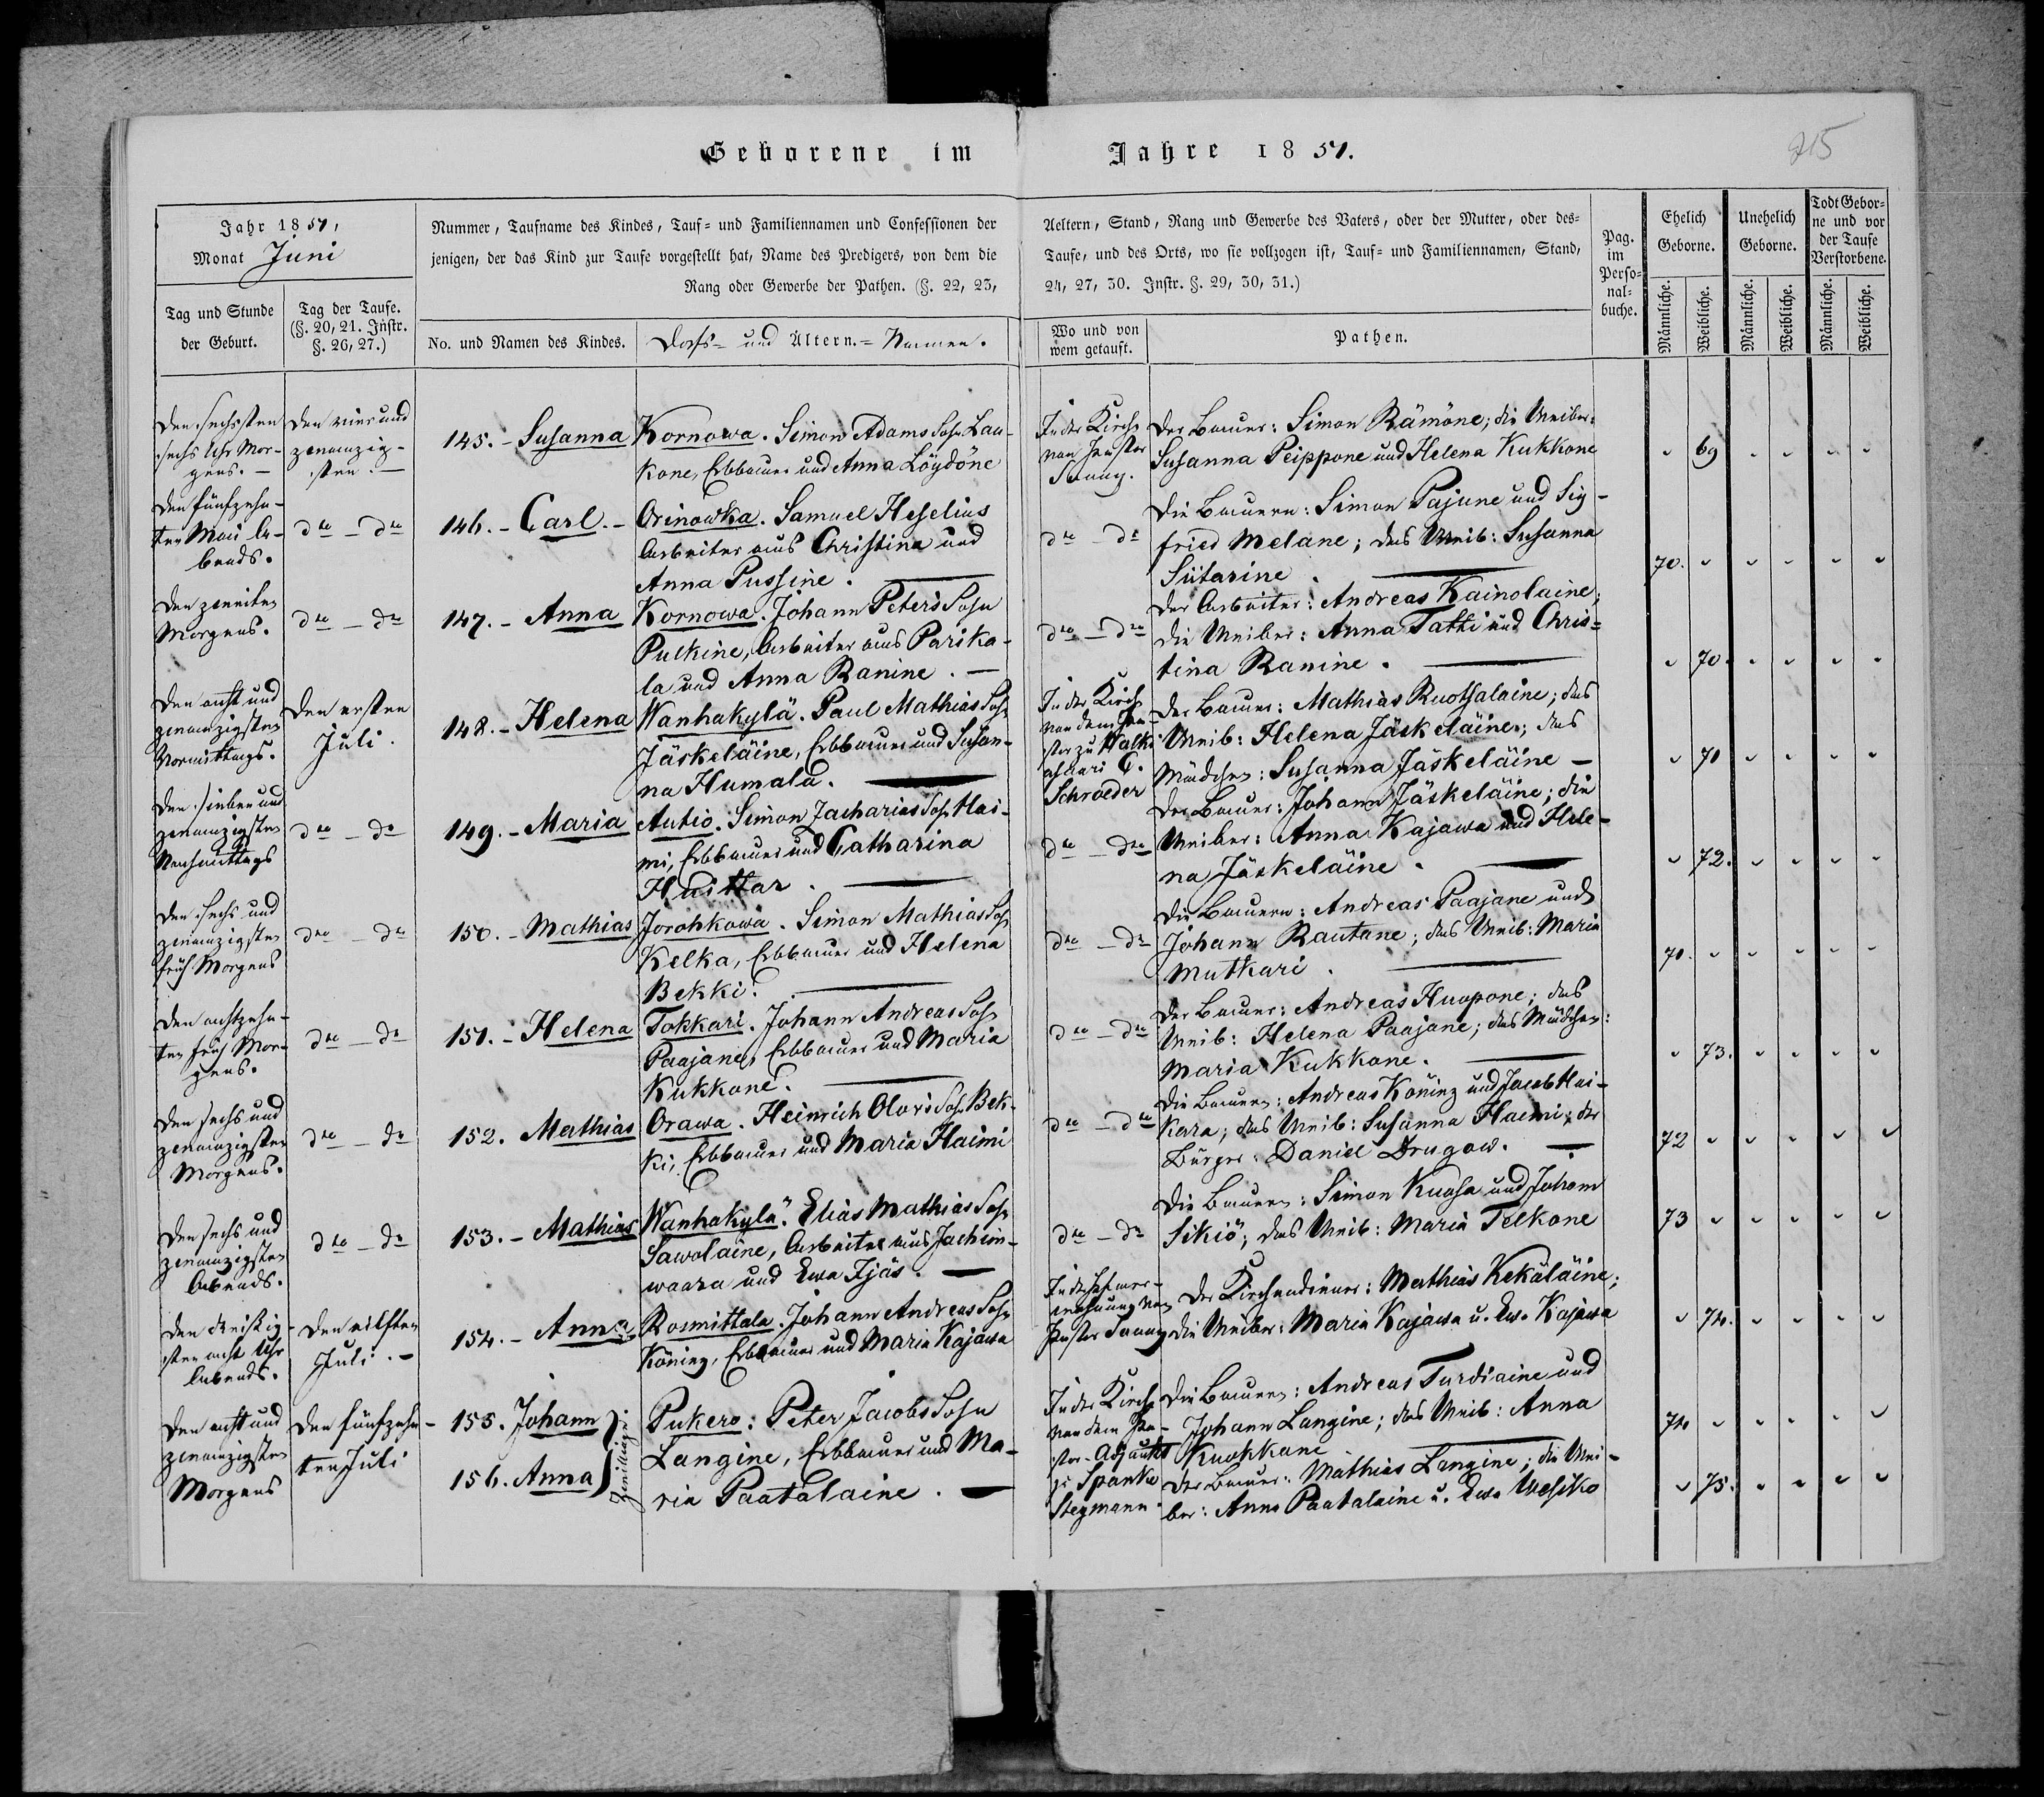 Geborene im Jahre 1851.
215
Jahr 1851,
Monat Juni
Nummer, Taufname des Kindes, Tauf- und Familiennamen und Confessionen der
jenigen, der das Kind zur Taufe vorgestellt hat, Name des Predigers, von dem die
Rang oder Gewerbe der Pathen. (§. 22, 23,
Aeltern, Stand, Rang und Gewerbe des Vaters, oder der Mutter, oder des-
Taufe, und des Orts, wo sie vollzogen ist, Tauf- und Familiennamen, Stand,
24, 27, 30. Instr. §. 29, 30, 31.)
Pag.
im
Perso-
nal-
buche.
Ehelich
Geborne.
Unehelich
Geborne.
Todt Gebor-
ne und vor
der Taufe
Verstorbene.
Männliche.
Weibliche.
Männliche.
Weibliche.
Männliche.
Weibliche.
Tag und Stunde
der Geburt.
Tag der Taufe.
(§. 20, 21. Instr.
§. 26, 27.)
No. und Namen des Kindes.
Dorfs- und Ältern.-Namen.
Wo und von
wem getauft.
Pathen.
Den sechsten
sechs Uhr Mor-
gens. -
Den vier und
zwanzig-
sten. -
145. - Susanna
Kornowa. Simon Adams Sohn Lau-
kone, Erbbauer und Anna Löydöne
In der Kirche
von Pastor
Der Bauer: Simon Rämöne; die Weiber:
Susanna Peippone und Helena Kukkone
" 69 " " " "
Den fünfzehn-
ten Mai A-
bends.
dto - dto
146. - Carl. -
Orinowka. Samuel Heselius
Arbeiter aus Christina und
Anna Pussine.
dto - dto
Die Bauern: Simon Pajune und Sig-
fried Melane; das Weib: Susanna
Siitarine.
70. " " " " "
Den zweiten
Morgens.
dto - dto
147. - Anna
Kornowa. Johann Peters Sohn
Pulkine, Arbeiter aus Parika-
la und Anna Ranine. -
dto - dto
Der Arbeiter: Andreas Kainolaine;
die Weiber: Anna Tatti und Chris-
tina Ranine.
" 70. " " " "
Den acht und
zwanzigsten
Vormittags.
Den ersten
Juli.
148. - Helena
Wanhakylä. Paul Mathias Sohn
Jäskeläine, Erbbauer und Susan-
na Humala.
In der Kirche
von dem Pa-
stor zu Walk-
asaari C.
Schroeder
Der Bauer: Mathias Ruotsalaine; das
Weib: Helena Jäskeläine; das
Mädchen: Susanna Jäskeläine -
" 71 " " " "
Den sieben und
zwanzigsten
Nachmittags
dto - dto
149. - Maria
Autio. Simon Zacharias Sohn Hai-
mi, Erbbauer und Catharina
Huittar.
dto - dto
Der Bauer: Johann Jäskeläine; die
Weiber: Anna Kajawa und Hele-
na Jäskeläine.
" 72. " " " "
Den sechs und
zwanzigsten
früh Morgens
dto - dto
150. - Mathias
Jorohkowa. Simon Mathias Sohn
Kelka, Erbbauer und Helena
Bekki.
dto - dto
Die Bauern: Andreas Paajane und
Johann Rautane; das Weib: Maria
Mutkari.
71. " " " " "
Den achtzehn-
ten früh Mor-
gens.
dto - dto
151. - Helena
Tokkari. Johann Andreas Sohn
Paajane, Erbbauer und Maria
Kukkone.
dto - dto
Der Bauer: Andreas Huopone; das
Weib: Helena Paajane; das Mädchen:
Maria Kukkone.
" 73. " " " "
Den sechs und
zwanzigsten
Morgens.
dto - dto
152. Mathias
Orawa. Heinrich Olaris Sohn Bek-
ki, Erbbauer und Maria Haimi
dto - dto
Die Bauern: Andreas Köning und Jacob Hai-
kara; das Weib: Susanna Haimi; der
Bürger: Daniel Drugow. -
72 " " " " "
Den sechs und
zwanzigsten
Abends.
dto - dto
153. - Mathias
Wanhakylä. Elias Mathias Sohn
Sawolaine, Arbeiter aus Jachim-
waara und Ewa Ijäs. -
dto - dto
Die Bauern: Simon Kuosa und Johann
Sikiö; das Weib: Maria Telkone
73 " " " " "
Den dreißig-
sten acht Uhr
Abends.
Den elften
Juli. -
154. - Anna
Rosmittala. Johann Andreas Sohn
Köning, Erbbauer und Maria Kajawa
Der Kirchendiener: Mathias Kekäläine;
die Weiber: Maria Kajawa u. Ewa Kajawa
" 74. " " " "
Den acht und
zwanzigsten
Morgens
Den fünfzehn-
ten Juli
155. Johann
156. Anna
Zwillinge
Pukero: Peter Jacobs Sohn
Langine, Erbbauer und Ma-
ria Paatalaine. -
In der Kirche
von dem Pa-
stor-Adjunkt
zu Spanko
Stegmann
Die Bauern: Andreas Turdiaine und
Johann Langine; das Weib: Anna
Kuokkane
74 " " " " "
Der Bauer: Mathias Langine; die Wei-
ber: Anna Paatalaine u. Ewa Wesiko
" 75. " " " "